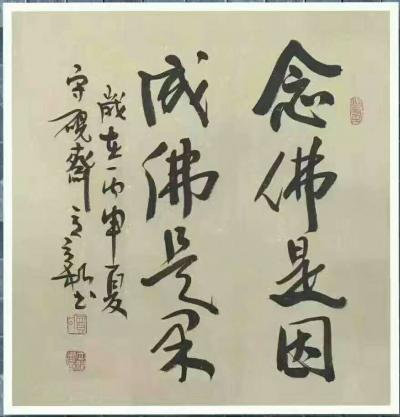 念佛是因
成佛是果
歲在丙申夏
守硯齋
書